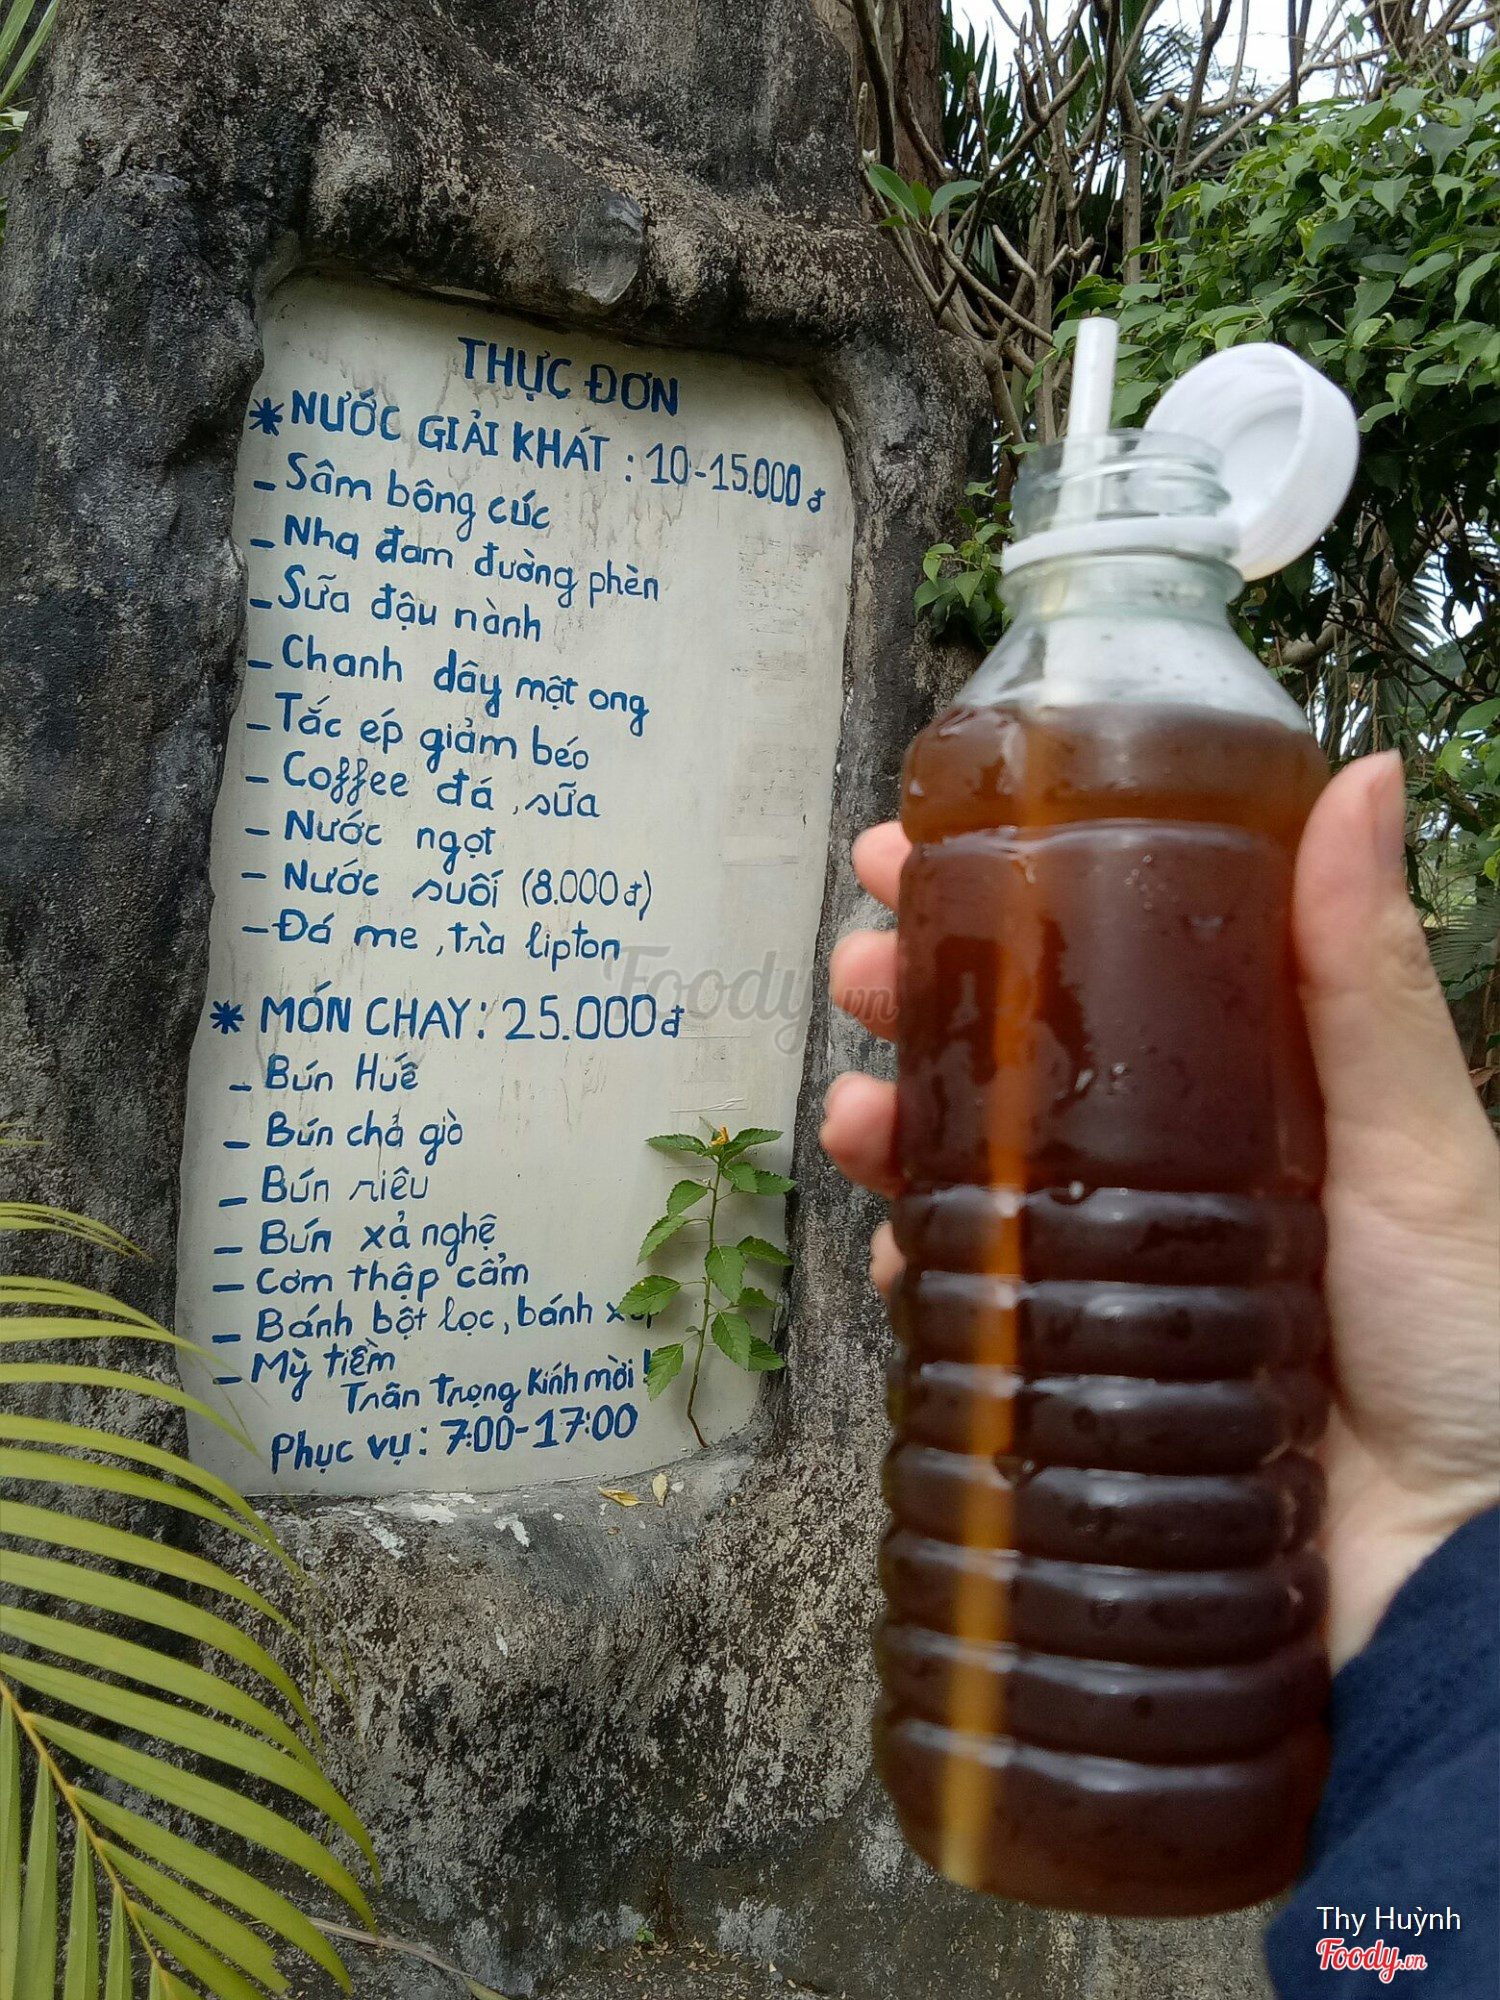 THỰC ĐƠN
* NƯỚC GIẢI KHÁT : 10-15.000 đ
- Sâm bông cúc
- Nha đam đường phèn
- Sữa đậu nành
- Chanh dây mật ong
- Tắc ép giảm béo
- Coffee đá, sữa
- Nước ngọt
- Nước suối (8.000 đ)
- Đá me, trà lipton
* MÓN CHAY: 25.000 đ
- Bún Huế
- Bún chả giò
- Bún riêu
- Bún xả nghệ
- Cơm thập cẩm
- Bánh bột lọc, bánh
- Mỳ tiềm
Trân trọng kính mời !
Phục vụ: 7:00-17:00
Foody.vn
Thy Huỳnh
Foody.vn